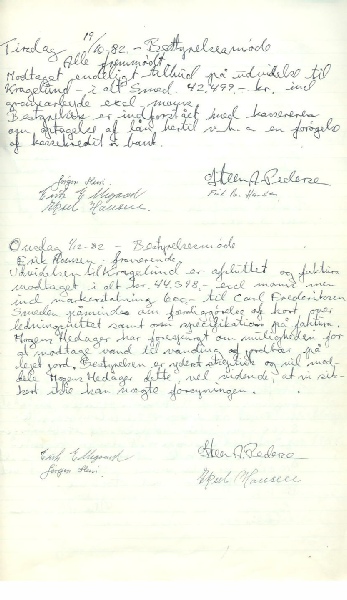 Tirsdag 19/10-82. - Bestyrelsesmøde
Alle fremmødt
Modtaget endeligt tilbud på udvidelse til
Kragelund - i alt Smed. 42,499,- kr. incl
gravearbejde excl moms.
Bestyrelsen er indforstået med kassereren
om optagelse af lån hertil v.h.a en forøgelse
af kassekredit i bank.
Jørgen
Steen A. Pedersen
Erik Ellegaard
Hansen
Axel Hansen
Onsdag 1/12-82 - Bestyrelsesmøde
Erik Hansen - fraværende
Udvidelsen til Kragelund er afsluttet og faktura
modtaget i alt kr. 44.598,- excl moms men
incl markerstatning 600,- til Carl Frederiksen
Smeden påmindes om færdiggørelse af kort over
ledningsnettet samt om specifikation på faktura.
Mogens Hedager har forespurgt om muligheden for
at modtage vand til vanding af jordbær på
lejet jord. Bestyrelsen er yderst skeptisk og vil meddele
Mogens Hedager dette, vel vidende, at vi sikkert
ikke kan nægte forsyningen.
Erik Ellegaard
Steen A. Pedersen
Jørgen
Axel Hansen